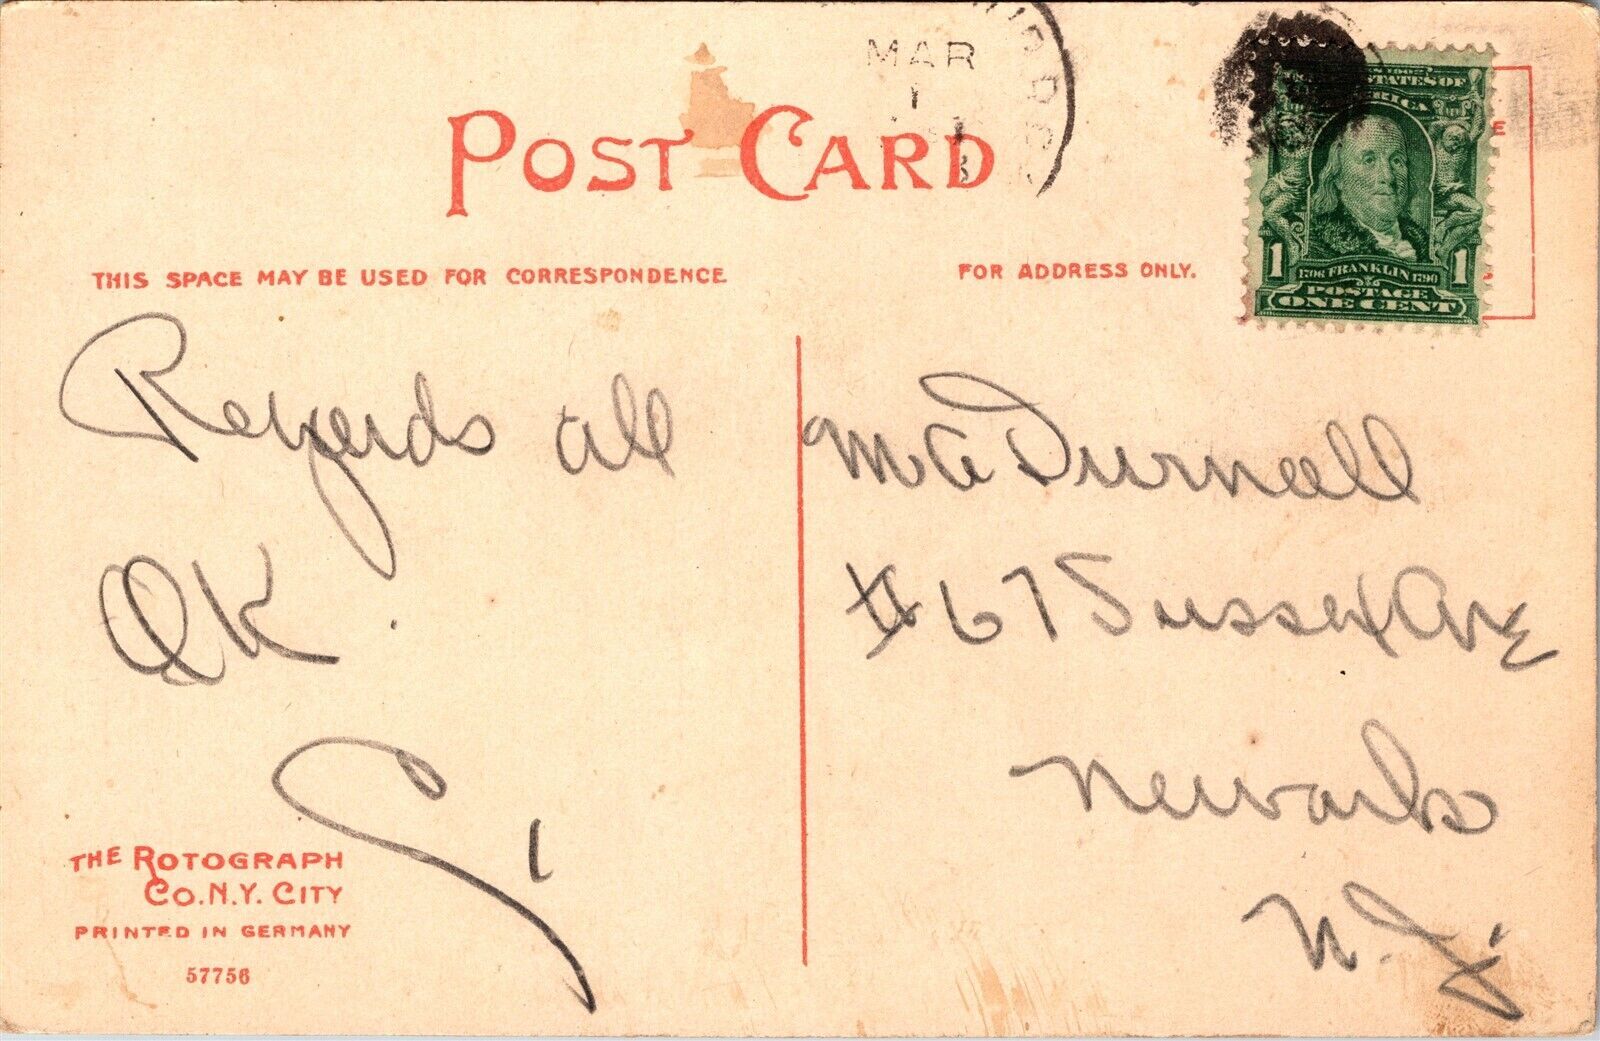 MAR
1
POST CARD
THIS SPACE MAY BE USED FOR CORRESPONDENCE
FOR ADDRESS ONLY.
STATES OF
1 1706 FRANKLIN 1790 1
POSTAGE
ONE CENT
Regards all
OK.
M A Durnall
# 67 Sussex Ave
Newark
N.J.
THE ROTOGRAPH
CO. N.Y. CITY
PRINTED IN GERMANY
57756